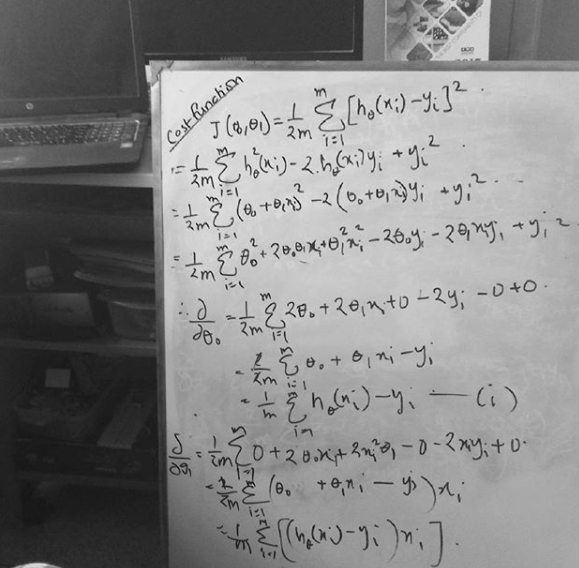 Cost Function
J(θ₀,θ₁) = 1/2m Σ_{i=1}^{m} [h_θ(x_i) - y_i]²
= 1/2m Σ_{i=1}^{m} h_θ²(x_i) - 2.h_θ(x_i)y_i + y_i²
= 1/2m Σ_{i=1}^{m} (θ₀ + θ₁x_i)² - 2(θ₀ + θ₁x_i)y_i + y_i²
= 1/2m Σ_{i=1}^{m} θ₀² + 2θ₀θ₁x_i + θ₁²x_i² - 2θ₀y_i - 2θ₁x_iy_i + y_i²
∴ ∂/∂θ₀ = 1/2m Σ_{i=1}^{m} 2θ₀ + 2θ₁x_i + 0 - 2y_i - 0 + 0.
= 2/2m Σ_{i=1}^{m} θ₀ + θ₁x_i - y_i
= 1/m Σ_{i=1}^{m} h_θ(x_i) - y_i — (i)
∂/∂θ₁ = 1/2m Σ_{i=1}^{m} 0 + 2θ₀x_i + 2x_i²θ₁ - 0 - 2x_iy_i + 0.
= 2/2m Σ_{i=1}^{m} (θ₀ + θ₁x_i - y_i) x_i
= 1/m Σ_{i=1}^{m} [(h_θ(x_i) - y_i) x_i].